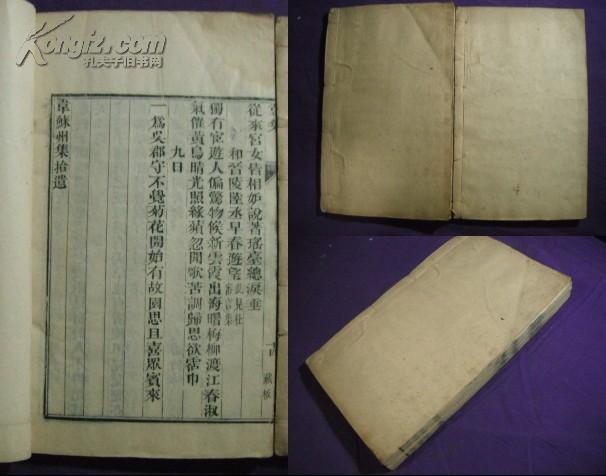 Kongfz.com
孔夫子旧书网
從來宮女皆相妒說著瑤臺總淚垂
和晉陵陸丞早春遊望
獨有宦遊人偏驚物候新雲霞出海曙梅柳渡江春淑
氣催黃鳥晴光照綠蘋忽聞歌苦調歸思欲霑巾
九日
一爲吳郡守不覺菊花開始有故園思且喜眾賓來
韋蘇州集拾遺